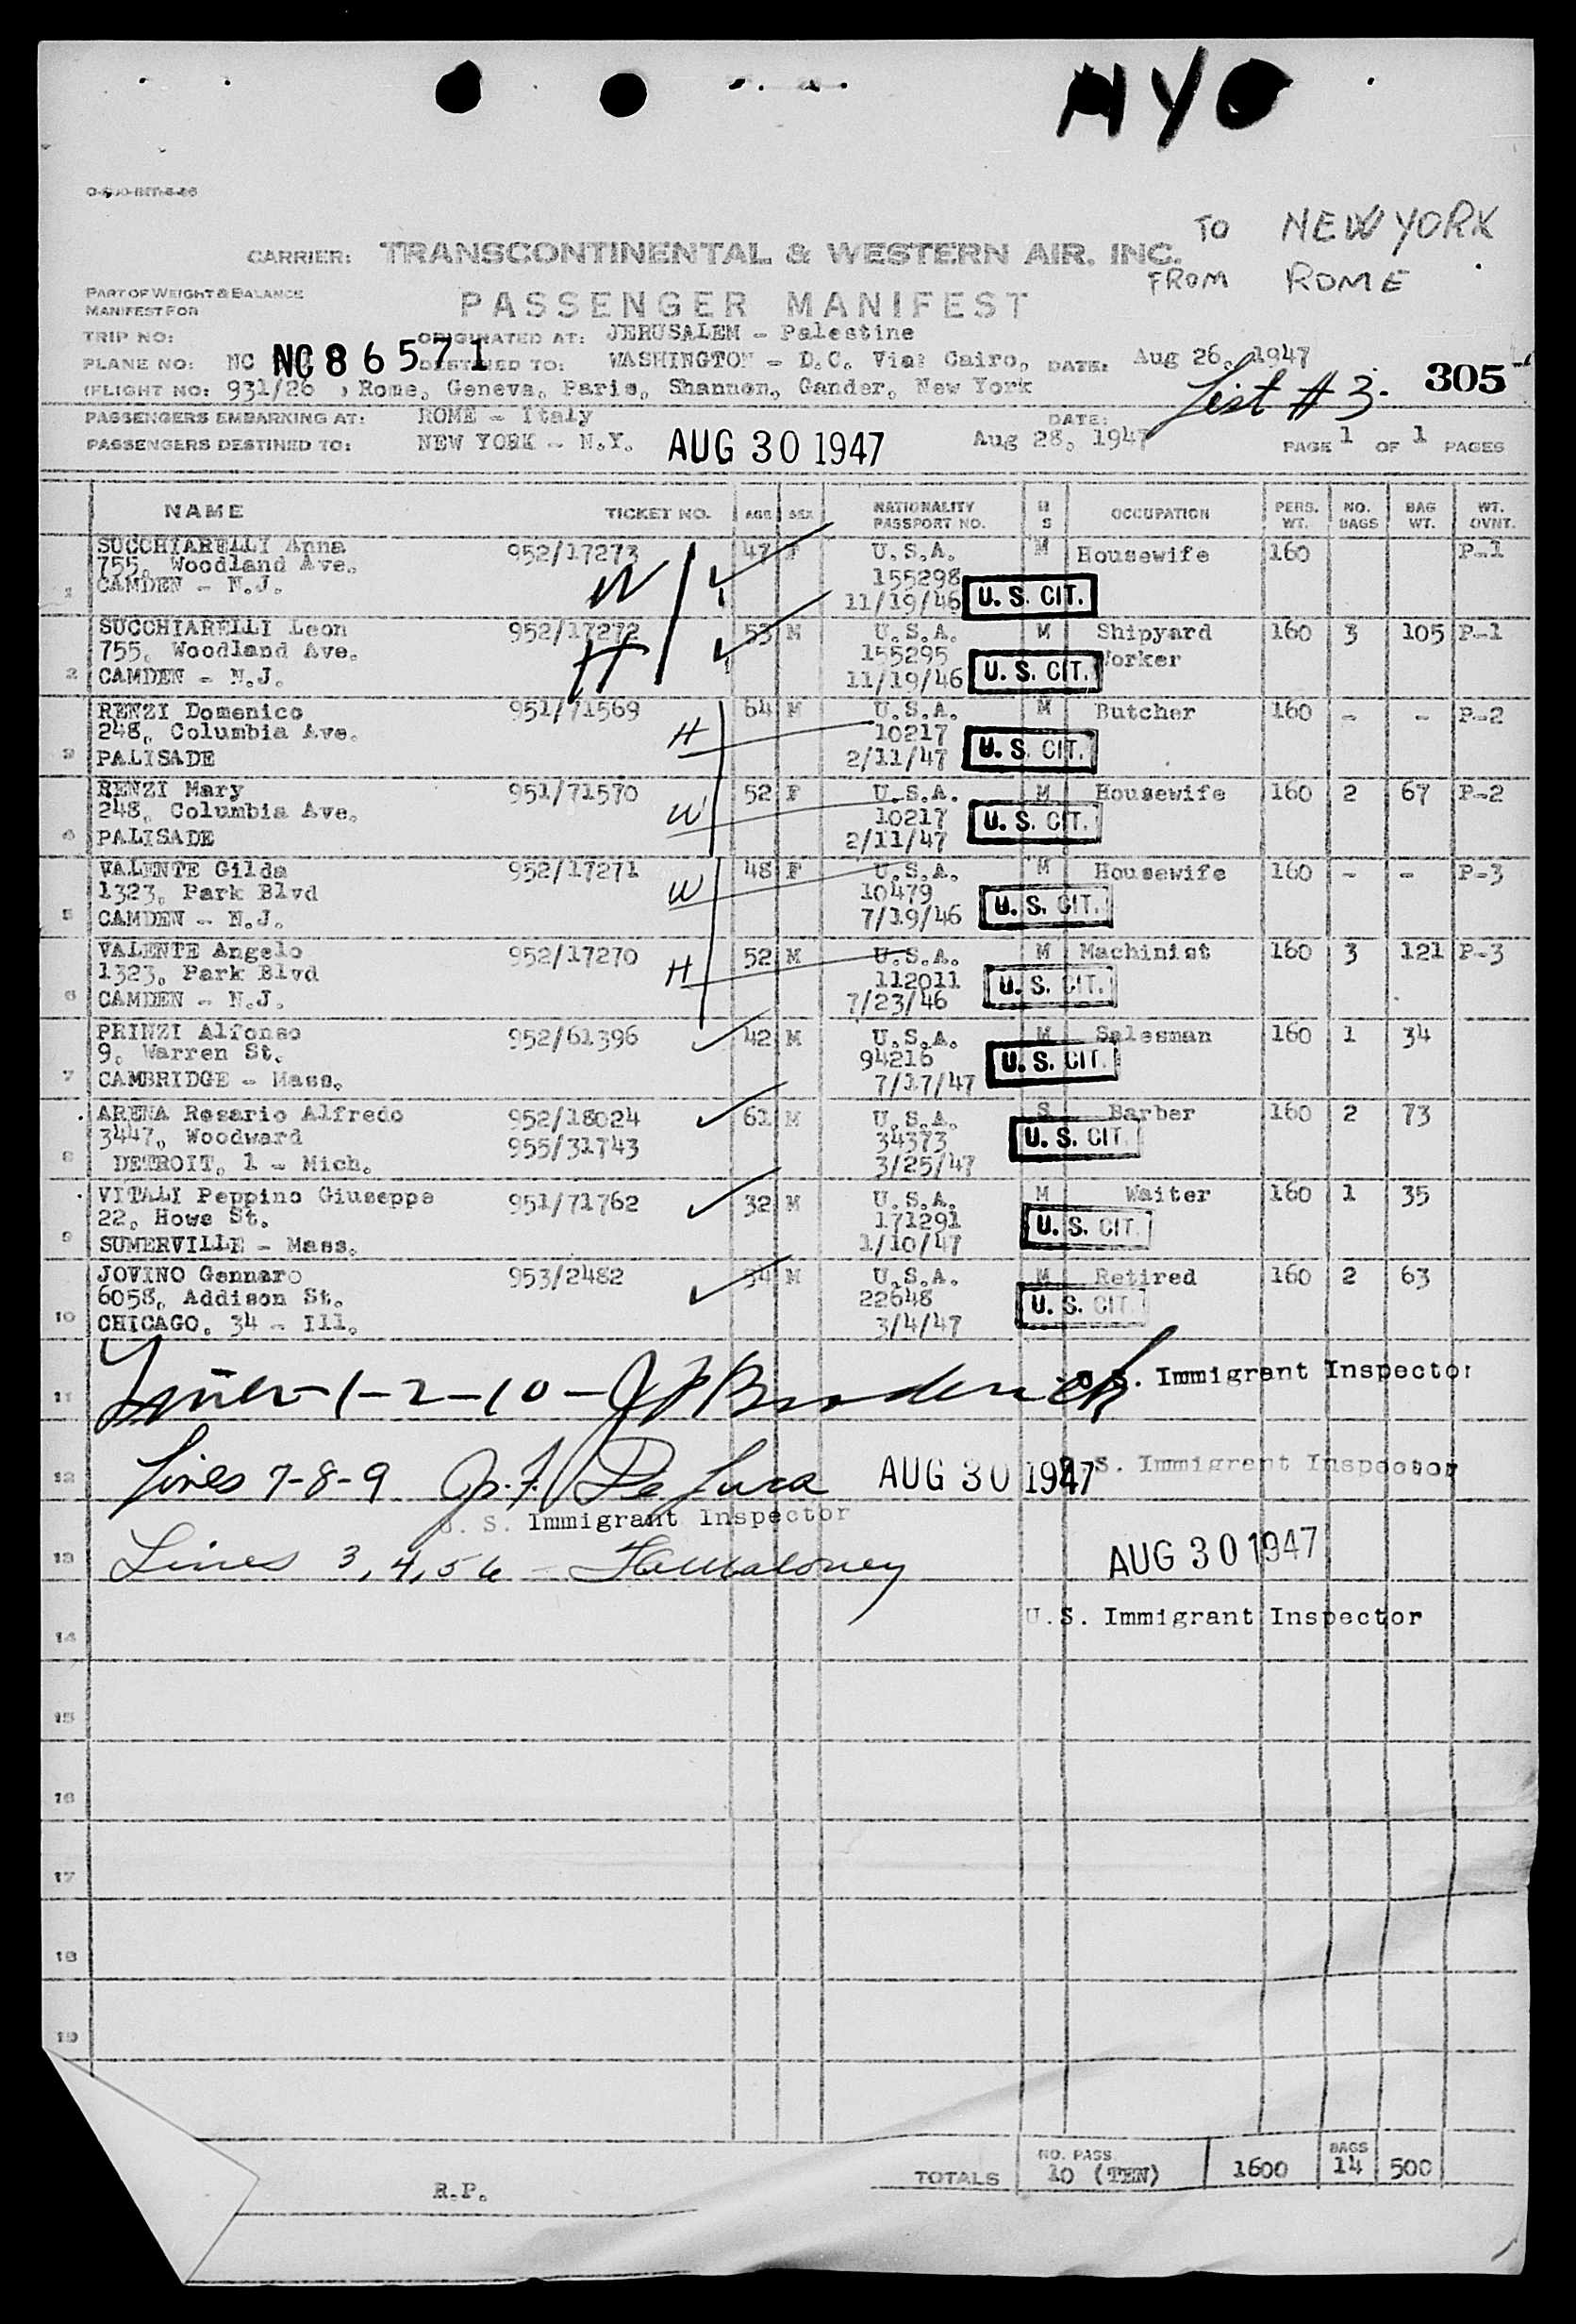 NYO
TO NEW YORK
CARRIER: TRANSCONTINENTAL & WESTERN AIR. INC.
FROM ROME
PART OF WEIGHT & BALANCE
MANIFEST FOR
PASSENGER MANIFEST
TRIP NO: ORIGINATED AT: JERUSALEM - Palestine
PLANE NO: NC NC86571 DESTINED TO: WASHINGTON - D.C. Via: Cairo, DATE: Aug 26, 1947
(FLIGHT NO: 931/26 ) Rome, Geneva, Paris, Shannon, Gander, New York List # 3. 305
PASSENGERS EMBARKING AT: ROME - Italy DATE:
PASSENGERS DESTINED TO: NEW YORK - N.Y. AUG 30 1947 Aug 28, 1947 PAGE 1 OF 1 PAGES
NAME TICKET NO. AGE SEX NATIONALITY PASSPORT NO. M S OCCUPATION PERS. WT. NO. BAGS BAG WT. WT. OVNT.
SUCCHIARELLI Anna 952/17273 47 F U.S.A. M Housewife 160 P-1
755, Woodland Ave. W 155298
1 CAMDEN - N.J. 11/19/46 U. S. CIT.
SUCCHIARELLI Leon 952/17272 53 M U.S.A. M Shipyard 160 3 105 P-1
755, Woodland Ave. H 155295 Worker
2 CAMDEN - N.J. 11/19/46 U. S. CIT.
RENZI Domenico 951/71569 64 M U.S.A. M Butcher 160 - - P-2
248, Columbia Ave. H 10217
3 PALISADE 2/11/47 U. S. CIT.
RENZI Mary 951/71570 52 F U.S.A. M Housewife 160 2 67 P-2
248, Columbia Ave. W 10217 U. S. CIT.
4 PALISADE 2/11/47
VALENTE Gilda 952/17271 48 F U.S.A. M Housewife 160 - - P-3
1323, Park Blvd W 10479
5 CAMDEN - N.J. 7/19/46 U. S. CIT.
VALENTE Angelo 952/17270 52 M U.S.A. M Machinist 160 3 121 P-3
1323, Park Blvd H 112011
6 CAMDEN - N.J. 7/23/46 U. S. CIT.
PRINZI Alfonso 952/61396 42 M U.S.A. M Salesman 160 1 34
9, Warren St. 94216
7 CAMBRIDGE - Mass. 7/17/47 U. S. CIT.
ARENA Rosario Alfredo 952/18024 61 M U.S.A. S Barber 160 2 73
3447, Woodward 955/31743 34373 U. S. CIT.
8 DETROIT, 1 - Mich. 3/25/47
VITALI Peppino Giuseppe 951/71762 32 M U.S.A. M Waiter 160 1 35
22, Howe St. 171291 U. S. CIT.
9 SUMERVILLE - Mass. 1/10/47
JOVINO Gennaro 953/2482 M U.S.A. M Retired 160 2 63
6058, Addison St. 22648 U. S. CIT.
10 CHICAGO, 34 - Ill. 3/4/47
11 Lines-1-2-10- J P Broderick U.S. Immigrant Inspector
12 Lines 7-8-9 J. F. De Luca AUG 30 1947 U.S. Immigrant Inspector
U. S. Immigrant Inspector
13 Lines 3,4,5 6 - Maloney AUG 30 1947
14 U.S. Immigrant Inspector
15
16
17
18
19
NO. PASS. BAGS
TOTALS 10 (TEN) 1600 14 500
R.P.